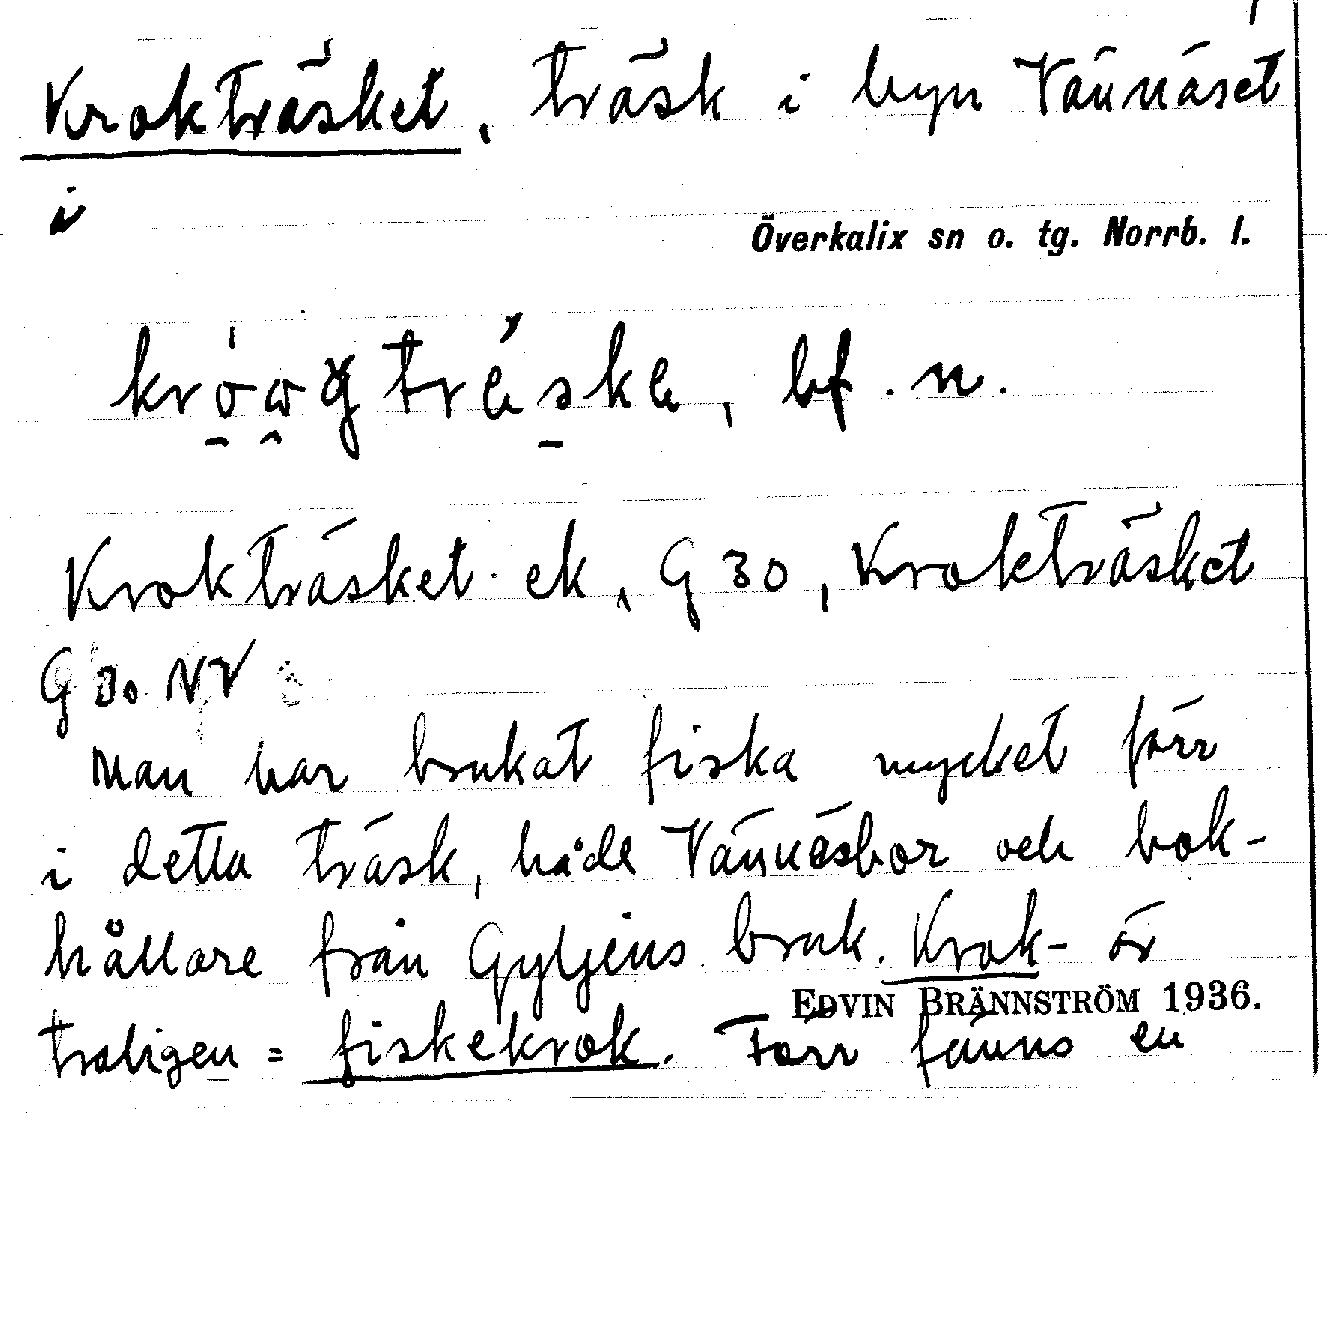 Krokträsket, träsk i byn Vännäset
i
Överkalix sn o. tg. Norrb. l.
bf. n.
Krokträsket ek, G 30, Krokträsket
G 30 NV
Man har brukat fiska mycket förr
i detta träsk, både Vännäsbor och bok-
hållare från Gyljens bruk. Krok- är
EDVIN BRÄNNSTRÖM 1936.
troligen = fiskekrok. Förr fanns en